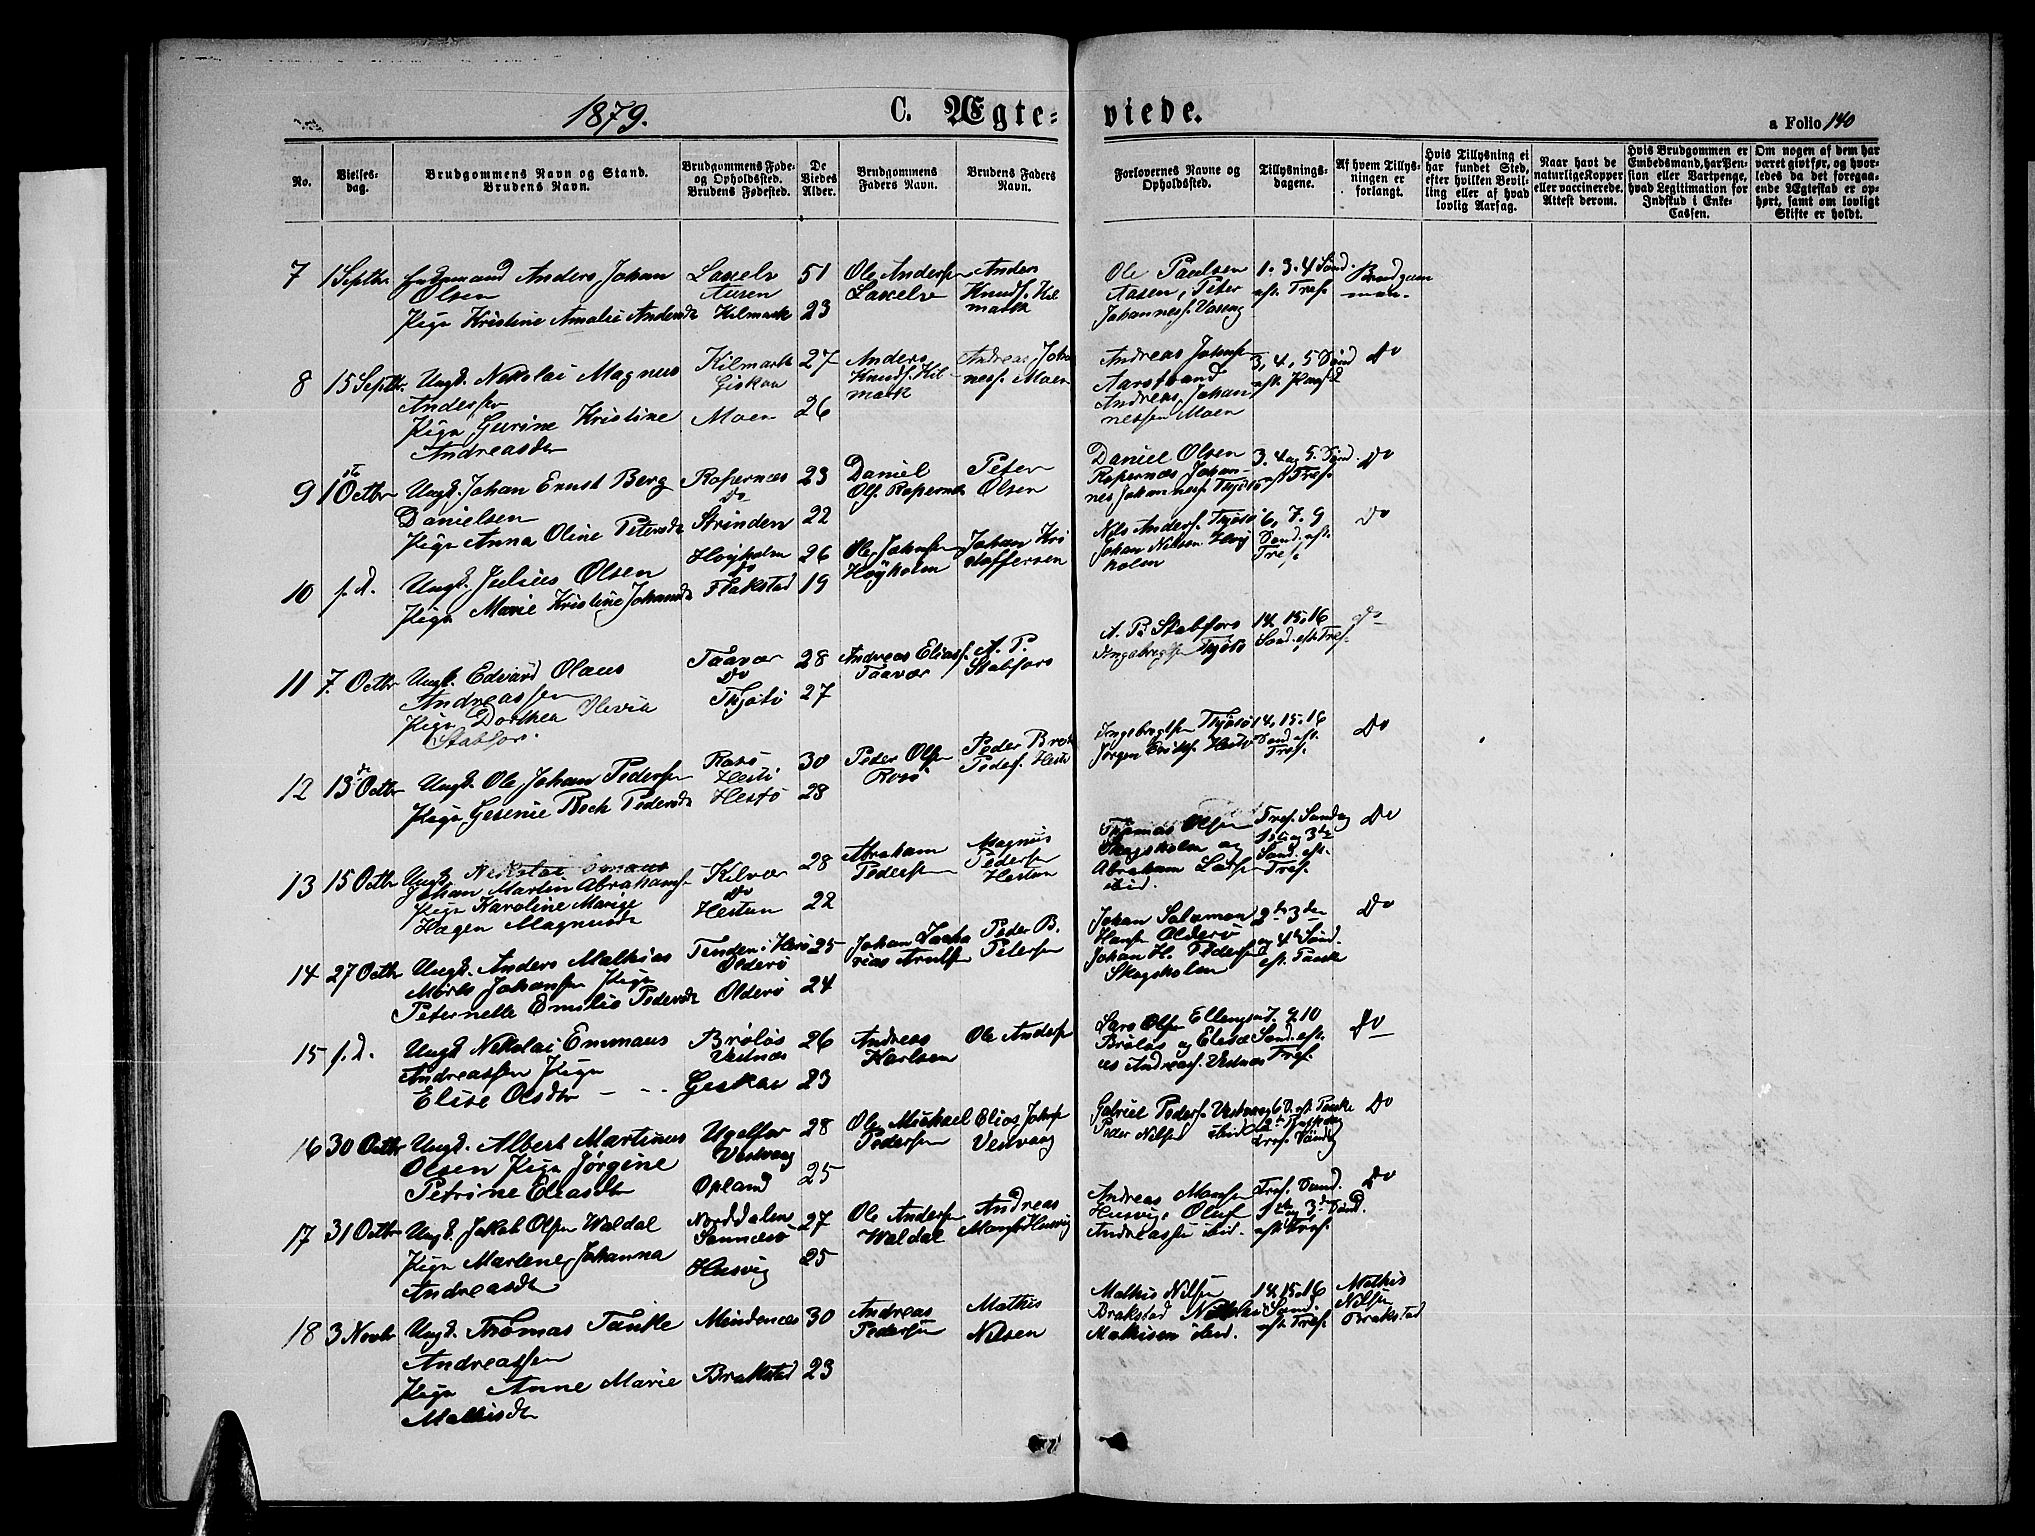 1879.
C. Ægte-
viede.
a Folio 140
No.
Vielses-
dag.
Brudgommens Navn og Stand.
Brudens Navn.
Brudgommens Føde-
og Opholdssted.
Brudens Fødested.
De
Viedes
Alder.
Brudgommens
Faders Navn.
Brudens Faders
Navn.
Forlovernes Navne og
Opholdssted.
Tillysnings-
dagene.
Af hvem Tillys-
ningen er
forlangt.
Hvis Tillysning ei
har fundet Sted,
efter hvilken Bevil-
ling eller af hvad
lovlig Aarsag.
Naar havt de
naturlige Kopper
eller vaccinerede.
Attest derom.
Hvis Brudgommen er
Embedsmand, har Pen-
sion eller Vartpenge,
hvad Legitimation for
Indskud i Enke-
Cassen.
Om nogen af dem har
været givt før, og hvor-
ledes da det foregaa-
ende Ægteskab er op-
hørt, samt om lovligt
Skifte er holdt.
7 1 Septbr Anders Johan
Olsen
Pige Kristine Amalie Andersd
Laxelv
Aasen
Kilmark
51
23
Ole Anders
Laxelv
Anders
Knuds. Kil
mark
Ole Paulsen
Aasen, Peter
Johanness.
1. 3. 4 Sønd.
eft. Tref.
Brudgom
men.
8 15 Septbr. Ungk. Nikolai Magnus
Anderssen
Pige Gurine Kristine
Andreasdtr
Kilmark
Giskaa
Moen
27
26
Anders
Knuds. Kil
mark
Andreas Joha
ness. Moen
Andreas Johns
Aarstrand
Andreas Johan
nessen Moen
3, 4, 5 Sønd
eft.
Do
9 1ste Octbr Ungk. Johan Ernst Berg
Danielsen
Pige Anna Oline Petersdtr
Ropernæs
Do
Strinden
23
22
Daniel
Ols. Ropernæs
Peter
Olsen
Daniel Olsen
Ropernæs Johan-
nes Johanness. Tjøtø
3. 4 og 5. Sønd.
eft Tref.
Do
10 s. d. Ungk. Julius Olsen
Pige Marie Kristine Johansd
Høyholm
Do
Flakstad
26
19
Ole Johnsen
Høyholm
Johan Kri
stoffersen
Nils Anders. Tjøtø
Johan Nilsen Høy
holm
6, 7. 9
Sønd. eft.
Tref.
Do
11 7. Octbr Ungk. Edvard Olaus
Andreassen
Pige Dorthea Olevia
Stabfors.
Taavær
Do
Thjøtø
28
27
Andreas Eliass.
Taavær
A. P.
Stabfors
A. P. Stabfors
Ingebregtsen Tjøtø
14, 15. 16
Sønd. eft. Tref.
Do
12 13de Octbr Ungk. Ole Johan Pedersen
Pige Gesenie Bech Pedersd
Rosø
Hestø
Hestø
30
28
Peder Olsen
Rosø
Peder Bech
Peders. Hestø
Ingebregtsen Tjøtø
Jørgen Eriks. Hestø
14, 15. 16
Sønd eft.
Tref.
Do
13 15 Octbr Ungk. Nikolai Emaus
Johan Martin Abrahams
Pige Karoline Marige
Hagen Magnusdtr
Kilvær
Do
Hestun
28
22
Abraham
Pedersen
Magnus
Pedersen
Hestun
Thomas Olsen
Skogsholm og
Abraham Larsen
ibid.
Tref. Søndag
1ste og 3die
Sønd. eft.
Tref.
Do
14 27 Octbr Ungk. Anders Mathias
Mørk Johansen Pige
Peternelle Emilie Pedersd
Tenden i Herø
Olderø
Olderø
25
24
Johan Zacha
rias Arnts
Peder B.
Petersen
Johan Salamon
Hans. Olderø
Johan H. Pedersen
Skogsholm
2den 3die
og 4de Sønd.
eft. Paaske
Do
15 s. d. Ungk Nikolai Emmaus
Andreassen Pige
Elise Olsdtr
Brøløs
Vestnæs
Giskaa
26
23
Andreas
Karlsen
Ole Anders
Lars Olsen
Brøløs og
Andreas. Vestnæs
7. 9. 10
Sønd. eft.
Tref.
Do
16 30 Octbr Ungk. Albert Martinus
Olsen Pige Jørgine
Petrine Eliasdtr
Ugelfor
Vestvaag
Opland
28
25
Ole Michael
Pedersen
Elias Johns
Vestvaag
Gabriel Peders. Vestvaag
Peder Nilsen ibid
6 S. eft. Paaske
Tref. Søndag
Do
17 31 Octbr Ungk. Jakob Olsen Waldal
Pige Marlene Johanna
Andreasdtr
Norddalen
Sannæs
Husvig
27
25
Ole Anders
Waldal
Andreas
Mons. Husvig
Andreas Monsen
Husvig, Oluf
Andreassen ibid.
Tref. Sønd.
1ste og 3die Sønd.
eft Tref.
Do
18 3 Novbr Ungk. Thomas Tanke
Andreassen
Pige Anne Marie
Mathisdtr
Mindenæs
Brakstad
30
23
Andreas
Pedersen
Mathis
Nilsen
Mathis Nilsen
Brakstad Nikolai
Mathisen ibid.
14. 15. 16
Sønd.
eft Tref.
Mathis
Nilsen
Brakstad